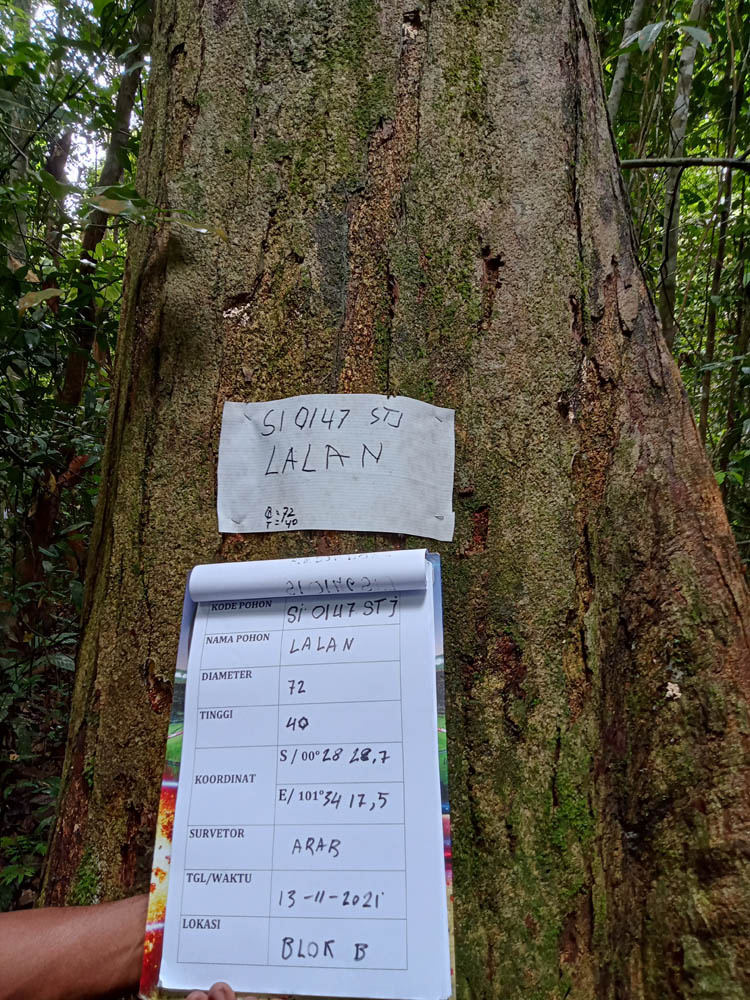 SI 0147 STJ
LALAN
Ø = 72
T = 40
KODE POHON Si 0147 STj
NAMA POHON LALAN
DIAMETER 72
TINGGI 40
KOORDINAT S / 00° 28 28,7
E/ 101° 34 17,5
SURVETOR ARAB
TGL/WAKTU 13-11-2021
LOKASI BLOK B